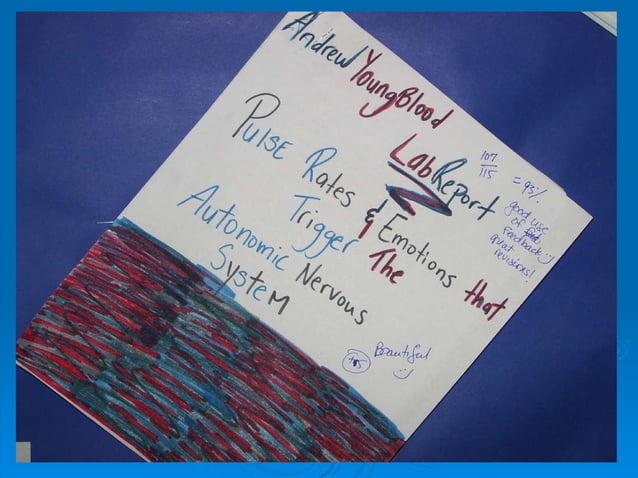 Andrew YoungBlood
Lab Report
Pulse Rates & Emotions that
Trigger The
Autonomic Nervous
System
107
115
= 93%
good use
of
Feedback :)
great
revisions!
Beautiful
:)
+5